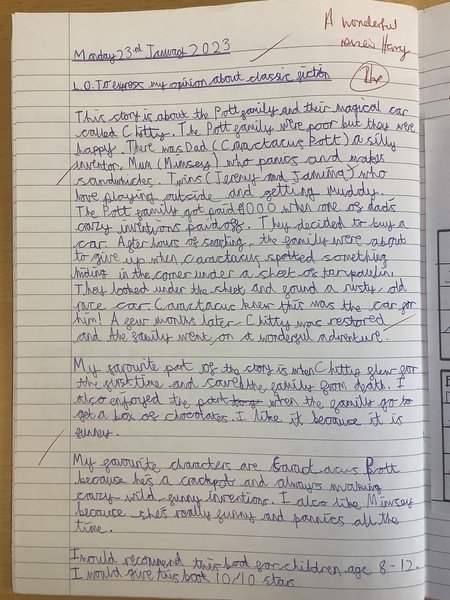 A wonderful
review Harry
Monday 23rd January 2023
L.O. To express my opinion about classic fiction
1hp
This story is about the Pott family and their magical car
called Chitty. The Pott family were poor but they were
happy. There was Dad (Caractacus Pott) a silly
inventor. Mum (Mimsey) who panics and makes
sandwiches. Twins (Jeremy and Jamima) who
love playing outside and getting muddy.
The Pott family got paid £1000 when one of dads
crazy inventions paid off. They decided to buy a
car. After hours of searching, the family were about
to give up when caractacus spotted something
hiding in the corner under a sheet of tarpaulin.
They looked under the sheet and found a rusty old
race car. Caractacus knew this was the car for
him! A few months later Chitty was restored
and the family went on a wonderful adventure.
My favourite part of the story is when Chitty flew for
the first time and saved the family from death. I
also enjoyed the part when the family go to
get a box of chocolates. I like it because it is
funny.
My favourite characters are Caractacus Pott
because he's a crackpot and always making
crazy wild funny inventions. I also like Mimsey
because she's really funny and pannics all the
time.
I would recommend this book for children age 8-12.
I would give this book 10/10 stars.